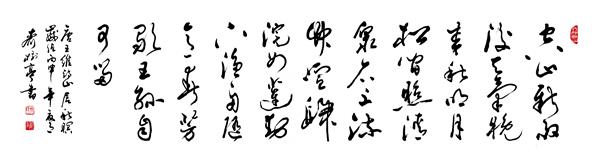 空山新雨
後天氣晚
來秋明月
松間照清
泉石上流
竹喧歸
浣女蓮動
下漁舟隨
意春芳
歇王孫自
可留
唐王維山居秋暝
丙申年
書